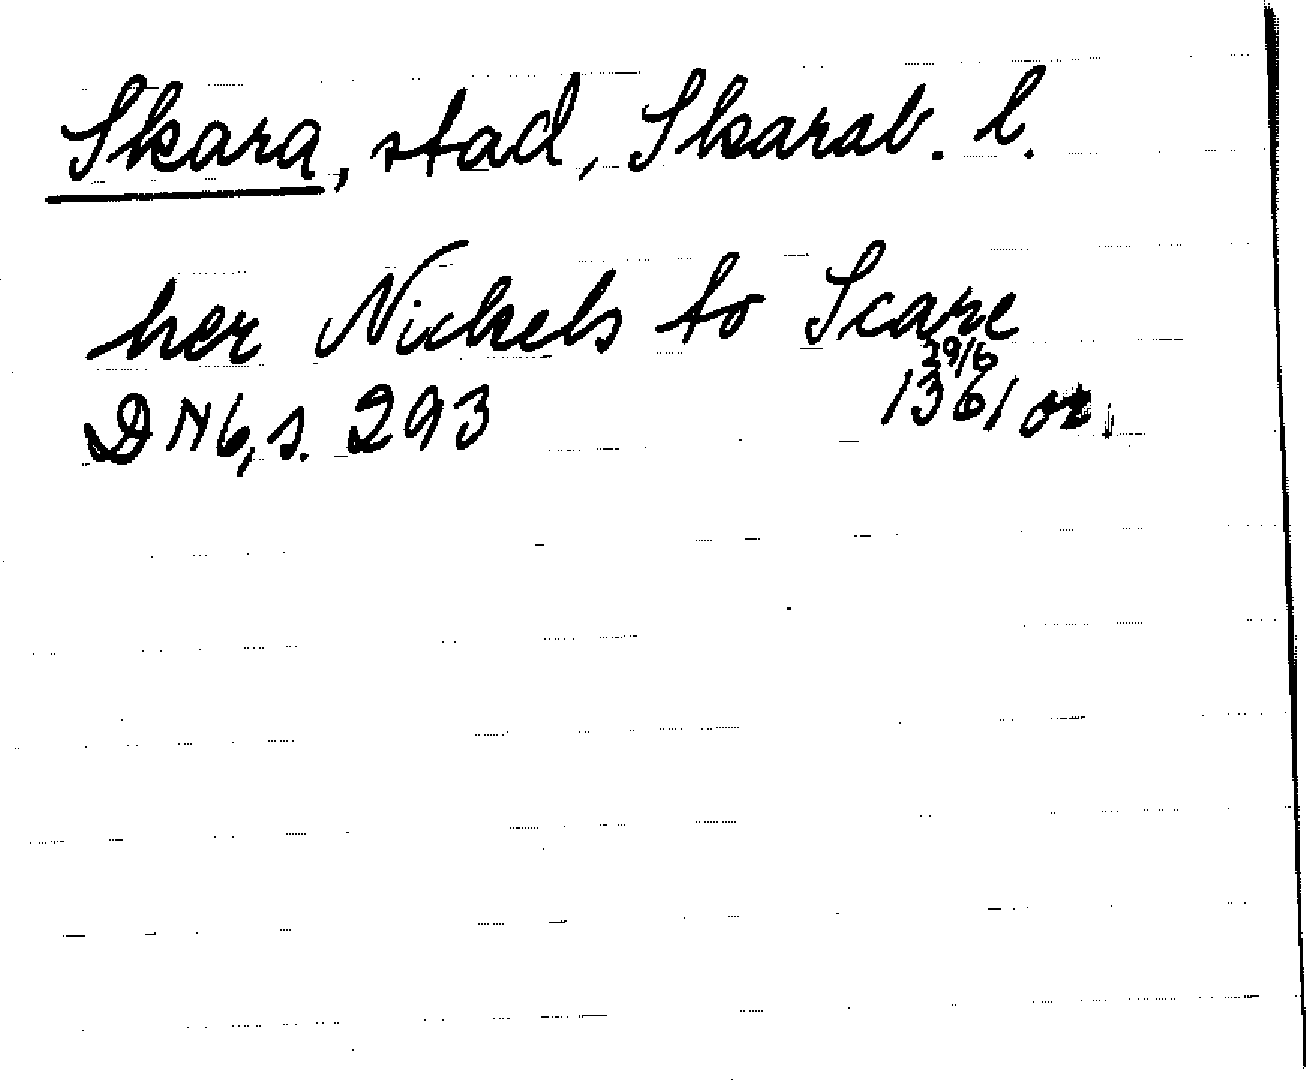 Skara, stad, Skarab. l.
her Nickels to Scare
29/6
DN6, s. 293 1361 or.